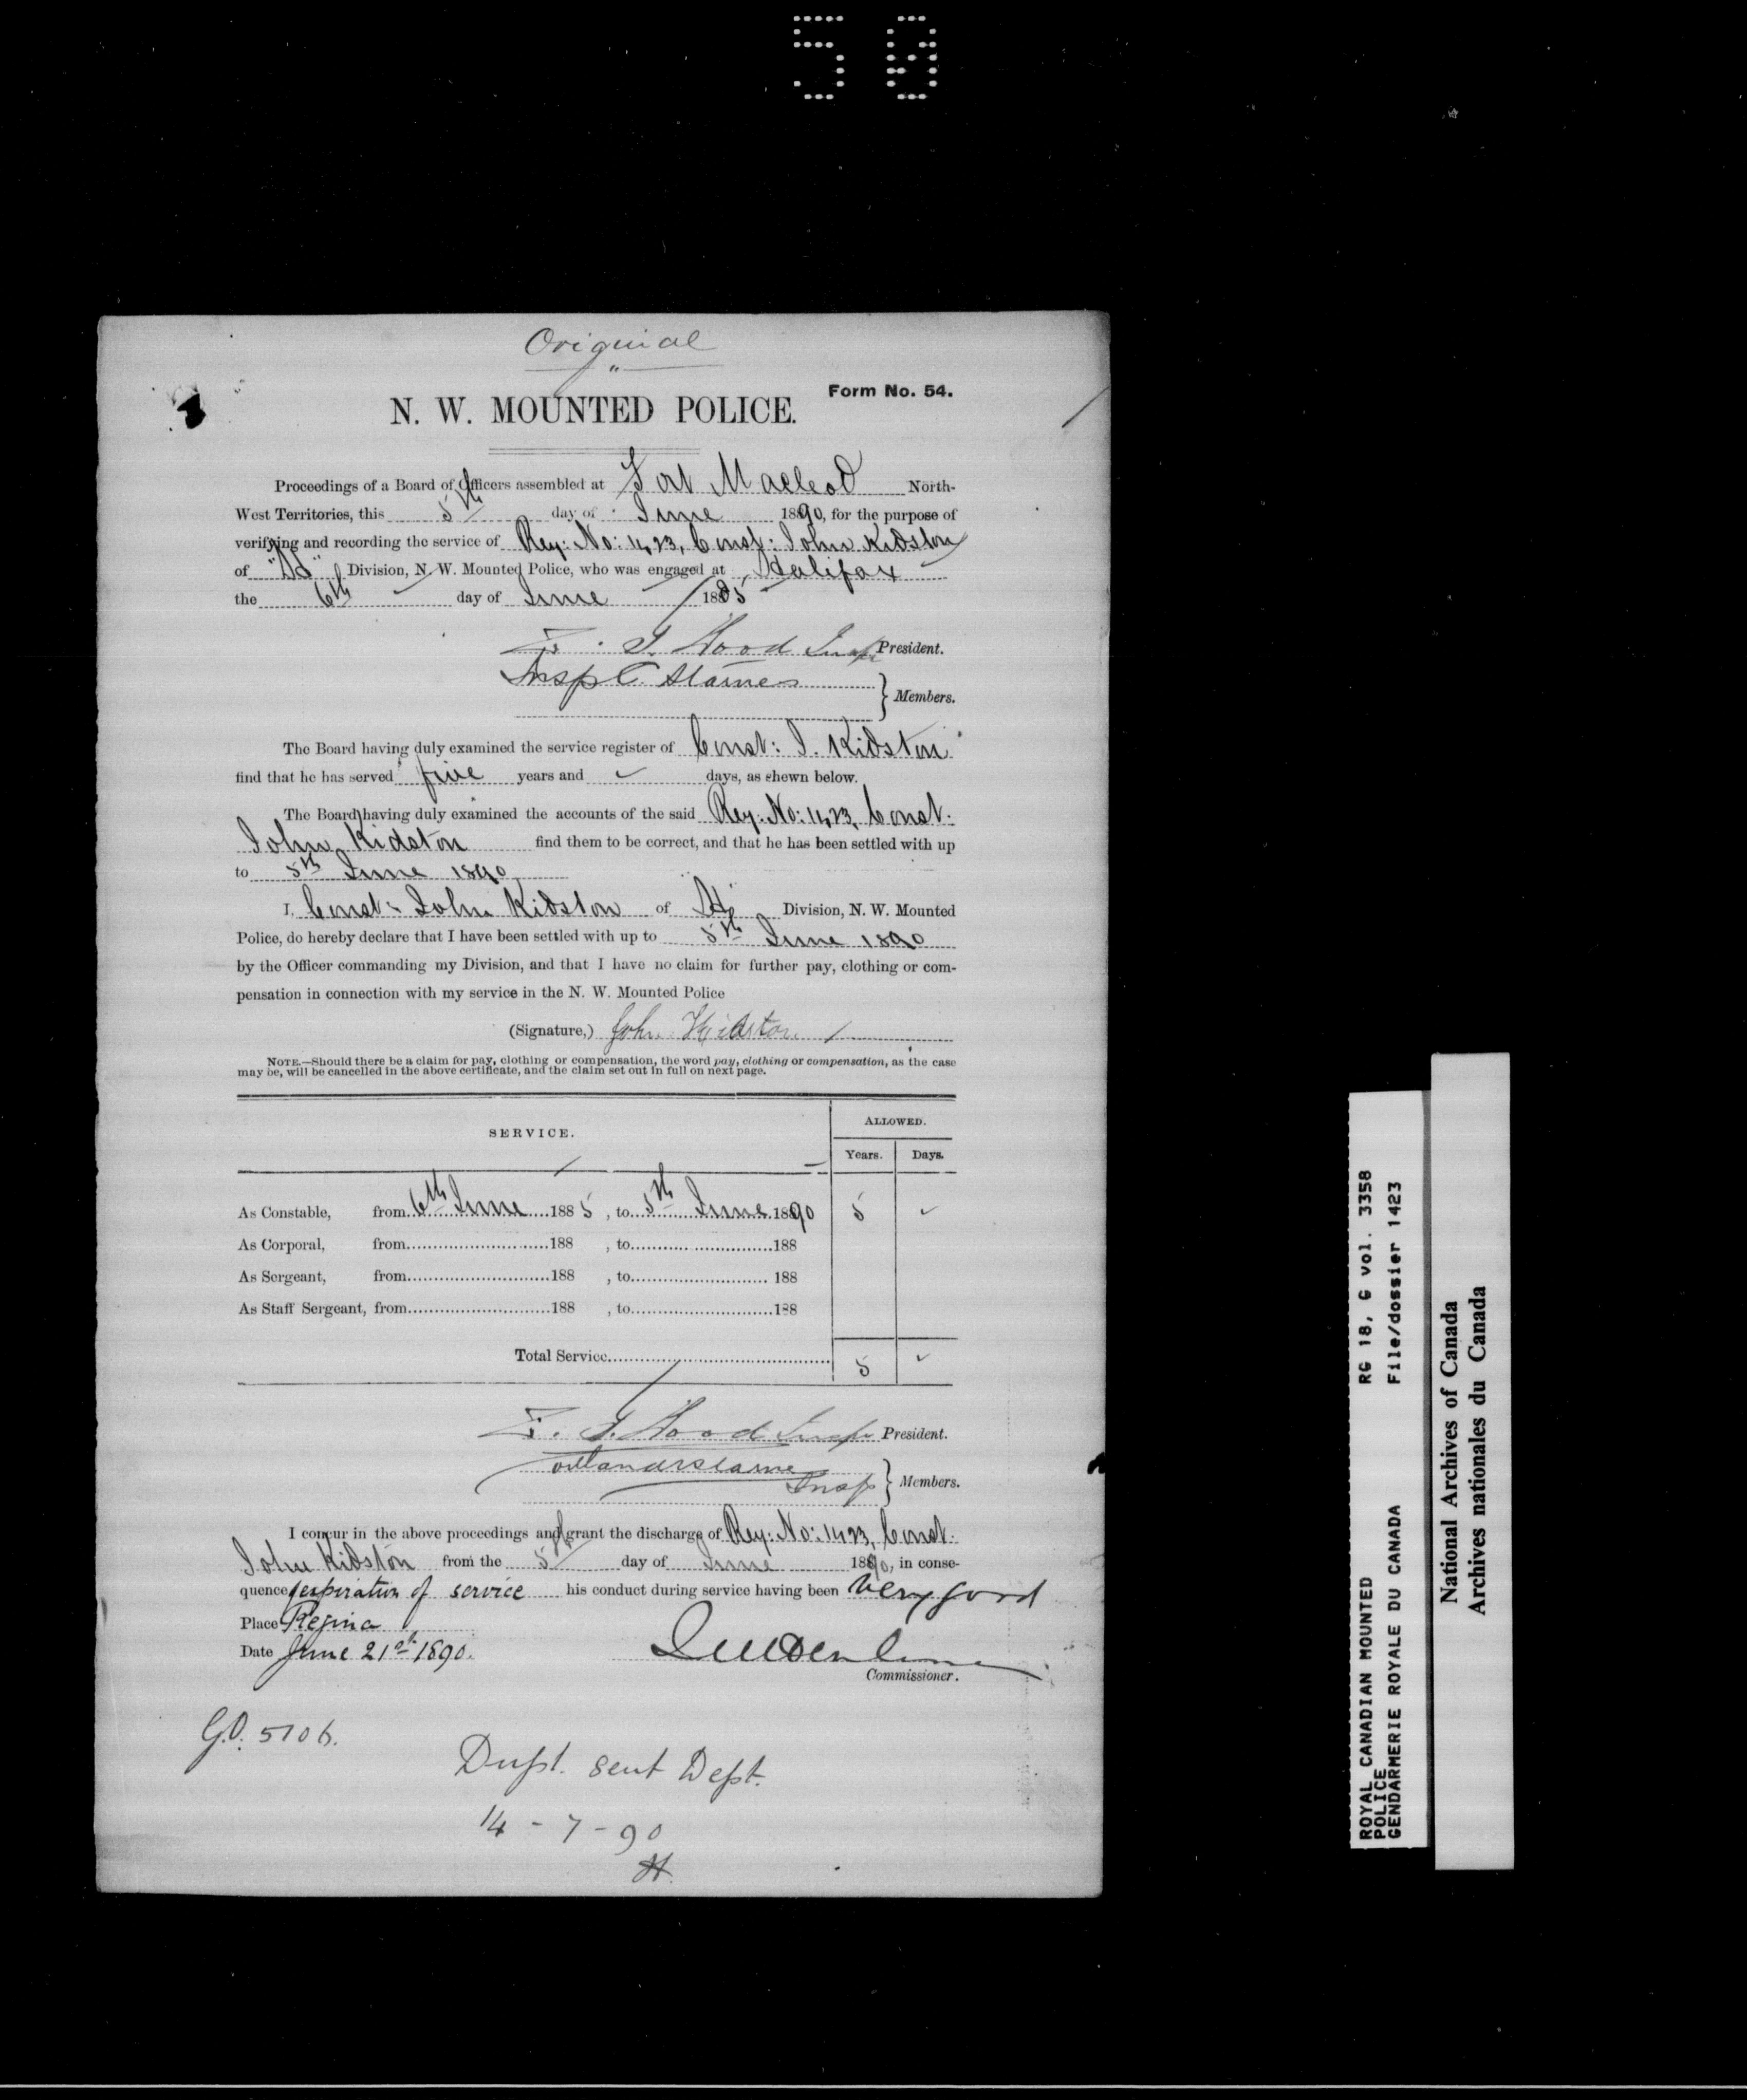 50
Original
"
Form No. 54.
N. W. MOUNTED POLICE.
Proceedings of a Board of Officers assembled at Fort Macleod North-
West Territories, this 5th day of June 1890, for the purpose of
verifying and recording the service of Reg: No: 1423, Const: John Kidston
of "H" Division, N. W. Mounted Police, who was engaged at Halifax
the 6th day of June 1885
Z. T. Wood Insp President.
Insp C. Starnes
Members.
The Board having duly examined the service register of Const: J. Kidston
find that he has served five years and ✓ days, as shewn below.
The Board having duly examined the accounts of the said Reg: No: 1423, Const.
John Kidston find them to be correct, and that he has been settled with up
to 5th June 1890
I, Const: John Kidston of H Division, N. W. Mounted
Police, do hereby declare that I have been settled with up to 5th June 1890
by the Officer commanding my Division, and that I have no claim for further pay, clothing or com-
pensation in connection with my service in the N. W. Mounted Police
(Signature,) John Kidston
NOTE.—Should there be a claim for pay, clothing or compensation, the word pay, clothing or compensation, as the case
may be, will be cancelled in the above certificate, and the claim set out in full on next page.
SERVICE.
ALLOWED.
Years. Days.
As Constable, from 6th June 1885, to 5th June 1890 5 ✓
As Corporal, from 188 , to 188
As Sergeant, from 188 , to 188
As Staff Sergeant, from 188 , to 188
Total Service 5 ✓
Z. T. Wood Insp President.
Starnes
Insp Members.
I concur in the above proceedings and grant the discharge of Reg: No: 1423, Const.
John Kidston from the 5th day of June 1890, in conse-
quence of expiration of service his conduct during service having been very good
Place Regina
Date June 21st 1890.
Commissioner.
G.O. 5106.
Dupl. sent Dept.
14-7-90
H
ROYAL CANADIAN MOUNTED RG 18, G vol. 3358
POLICE
GENDARMERIE ROYALE DU CANADA File/dossier 1423
National Archives of Canada
Archives nationales du Canada